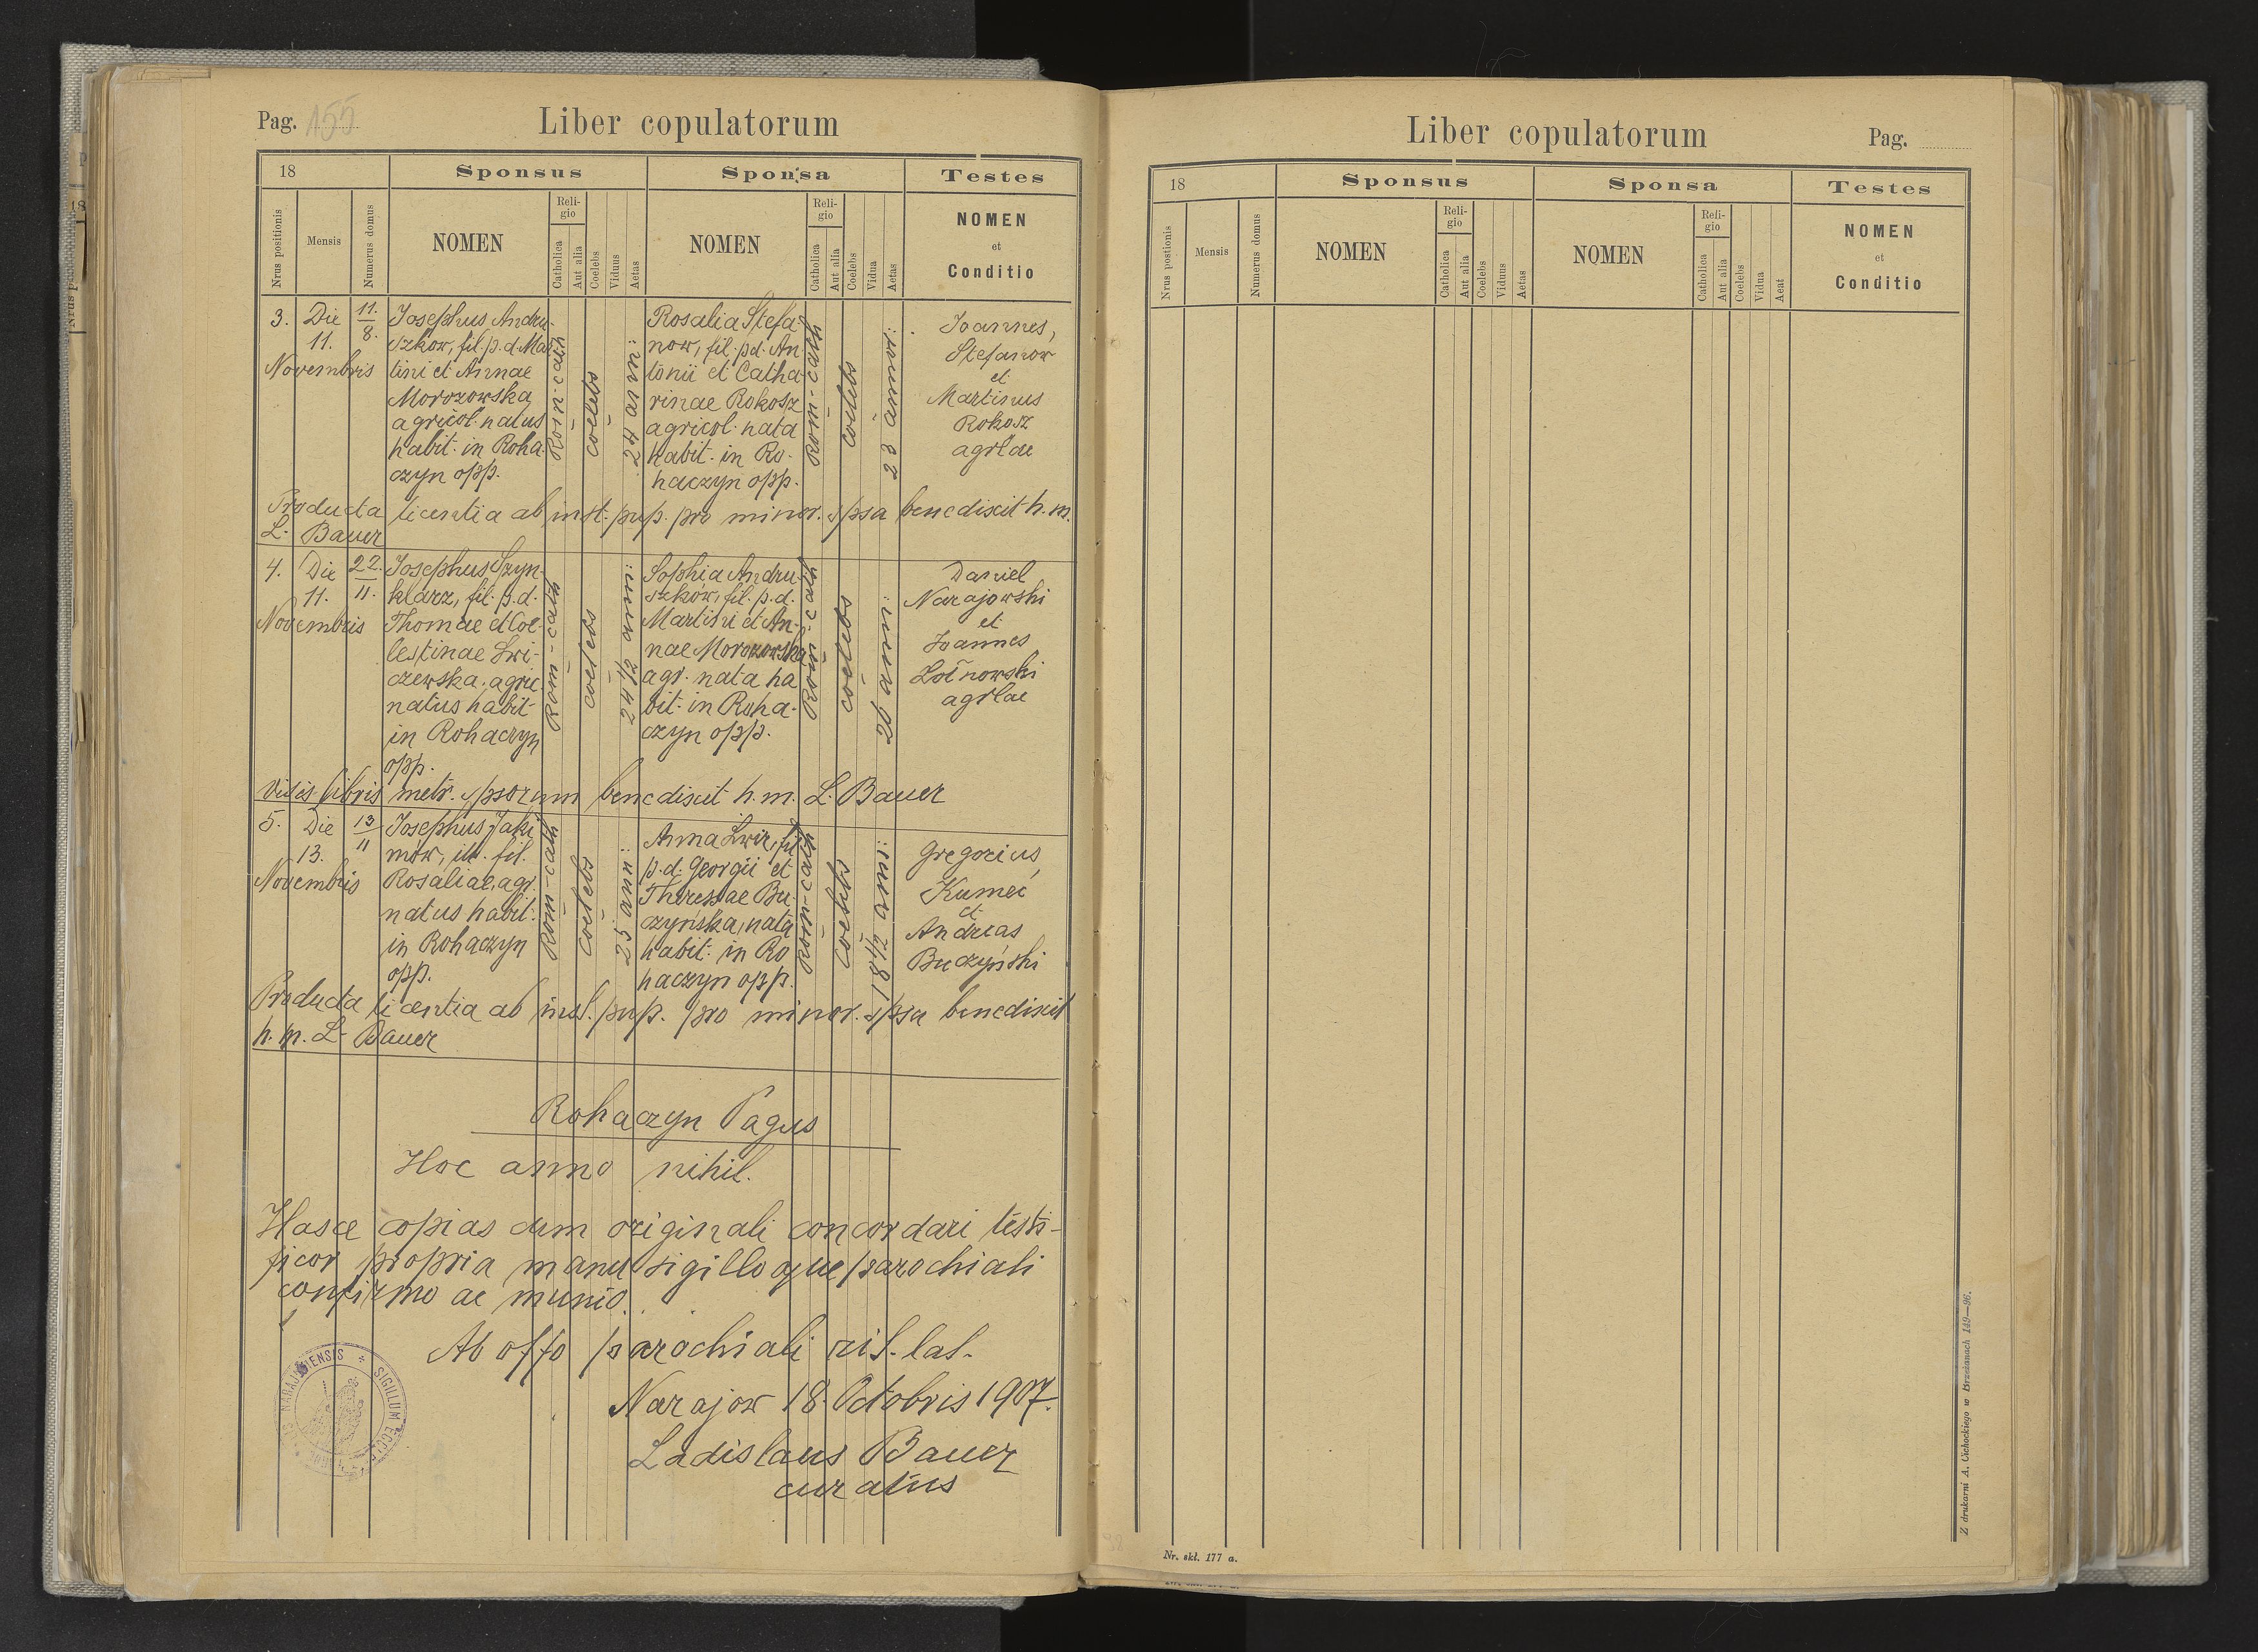 Pag. 155
Liber copulatorum
18
Sponsus
Sponsa
Testes
Nrus positionis
Mensis
Numerus domus
NOMEN
Reli-
gio
Catholica
Aut alia
Coelebs
Viduus
Aetas
NOMEN
Reli-
gio
Catholica
Aut alia
Coelebs
Vidua
Aetas
NOMEN
et
Conditio
3.
Die
11.
Novembris
11.
8.
Josephus Andru-
szków, fil. p. d. Mar
tini et Annae
Morozowska
agricol. natus
habit. in Roha-
czyn opp.
Rom-cath
coelebs
24 ann:
Rosalia Stefa
now, fil. p.d. An-
tonii et Catha-
rinae Rokosz
agricol. nata
habit. in Ro-
haczyn opp.
Rom-cath
coelebs
23 annor:
Joannes,
Stefanow
et
Martinus
Rokosz
agrlae
Producta licentia ab inst. pup. pro minor. spsa benedixit h. m.
L. Bauer
4.
Die
11.
Novembris
22.
11.
Josephus Szyn-
klarz, fil. p. d.
Thomae et Coe-
lestinae Lwi-
czewska, agric.
natus habit
in Rohaczyn
opp.
Rom-cath
coelebs
24 1/2 ann:
Sophia Andru-
szków, fil. p. d.
Martini et An-
nae Morozowska
agr. nata ha
bit. in Roha-
czyn opp.
Rom-cath
coelebs
Daniel
Narajowski
et
Joannes
agrlae
Visis libris metr. spsorum benedixit h. m. L. Bauer
5.
Die
13.
Novembris
13
11
Josephus Jaki
mów, ill. fil.
Rosaliae, agr.
natus habit.
in Rohaczyn
opp.
Rom-cath
coelebs
25 ann:
Anna Lwir, fil
p. d. Georgii et
Theresae Bu-
czyńska, nata
habit. in Ro
haczyn opp.
Rom-cath
coelebs
18 1/2 ann:
Gregorius,
Kumeć
et
Andreas
Buczyński
Producta licentia ab inst. pup. pro minor. spsa benedixit
h. m. L. Bauer
Rohaczyn Pagus
Hoc anno nihil.
Hasce copias cum originali concordari testi-
ficor propria manu sigilloque parochiali
confirmo ac munio.
Ab offo parochiali rit. lat.
Narajow 18 Octobris 1907.
Ladislaus Bauer
curatus
SIGILLUM ECCL
NARAJOVIENSIS
Liber copulatorum
Pag.
18
Sponsus
Sponsa
Testes
Nrus postionis
Mensis
Numerus domus
NOMEN
Reli-
gio
Catholica
Aut alia
Coelebs
Viduus
Aetas
NOMEN
Reli-
gio
Catholica
Aut alia
Coelebs
Vidua
Aeat
NOMEN
et
Conditio
Nr. skł. 177 a.
Z drukarni A. Cichockiego w Brzeżanach 149—96.